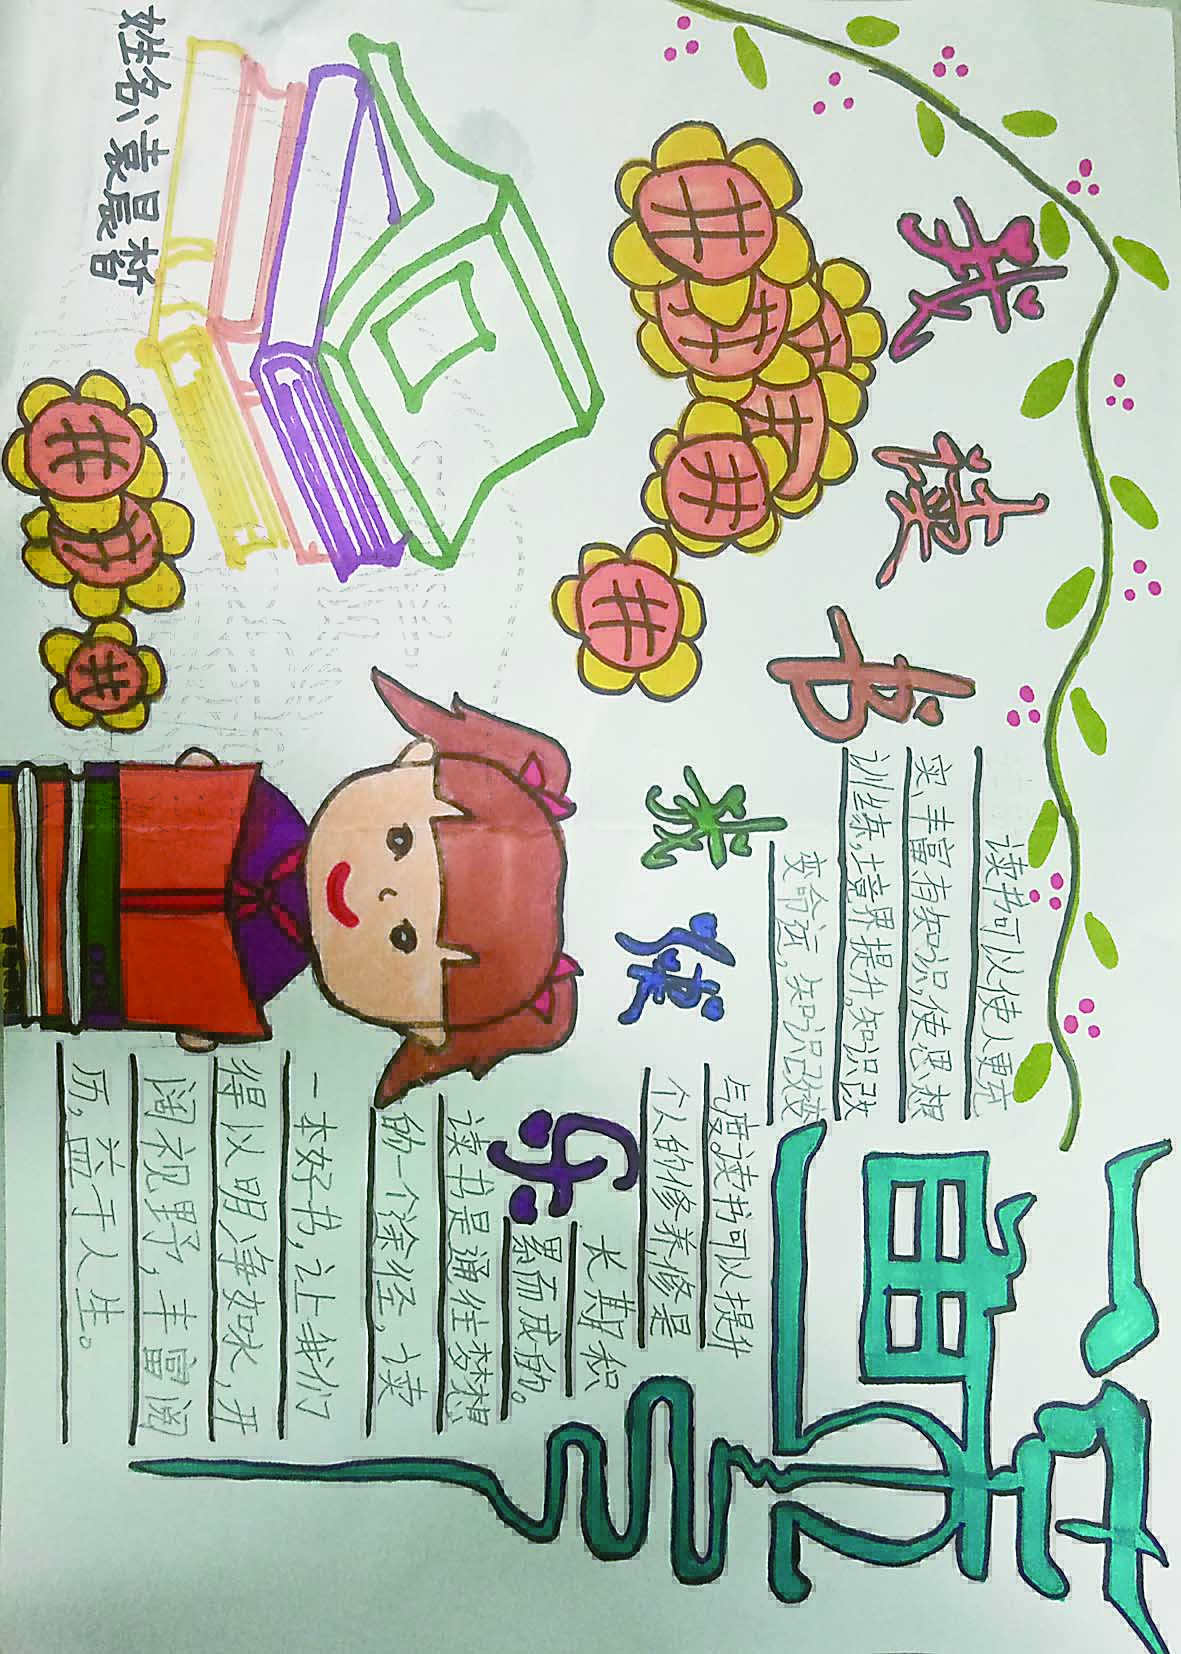 我读书
我快乐
读书可以使人更充
实、丰富有知识,使思想
训练,境界提升。知识改
变命运,知识改变
气度。读书可以提升
个人的修养,修是
长期积
累而成的。
读书是通往梦想
的一个途径,读
一本好书,让我们
得以明净如水,开
阔视野,丰富阅
历,益于人生。
姓名:袁晨皙